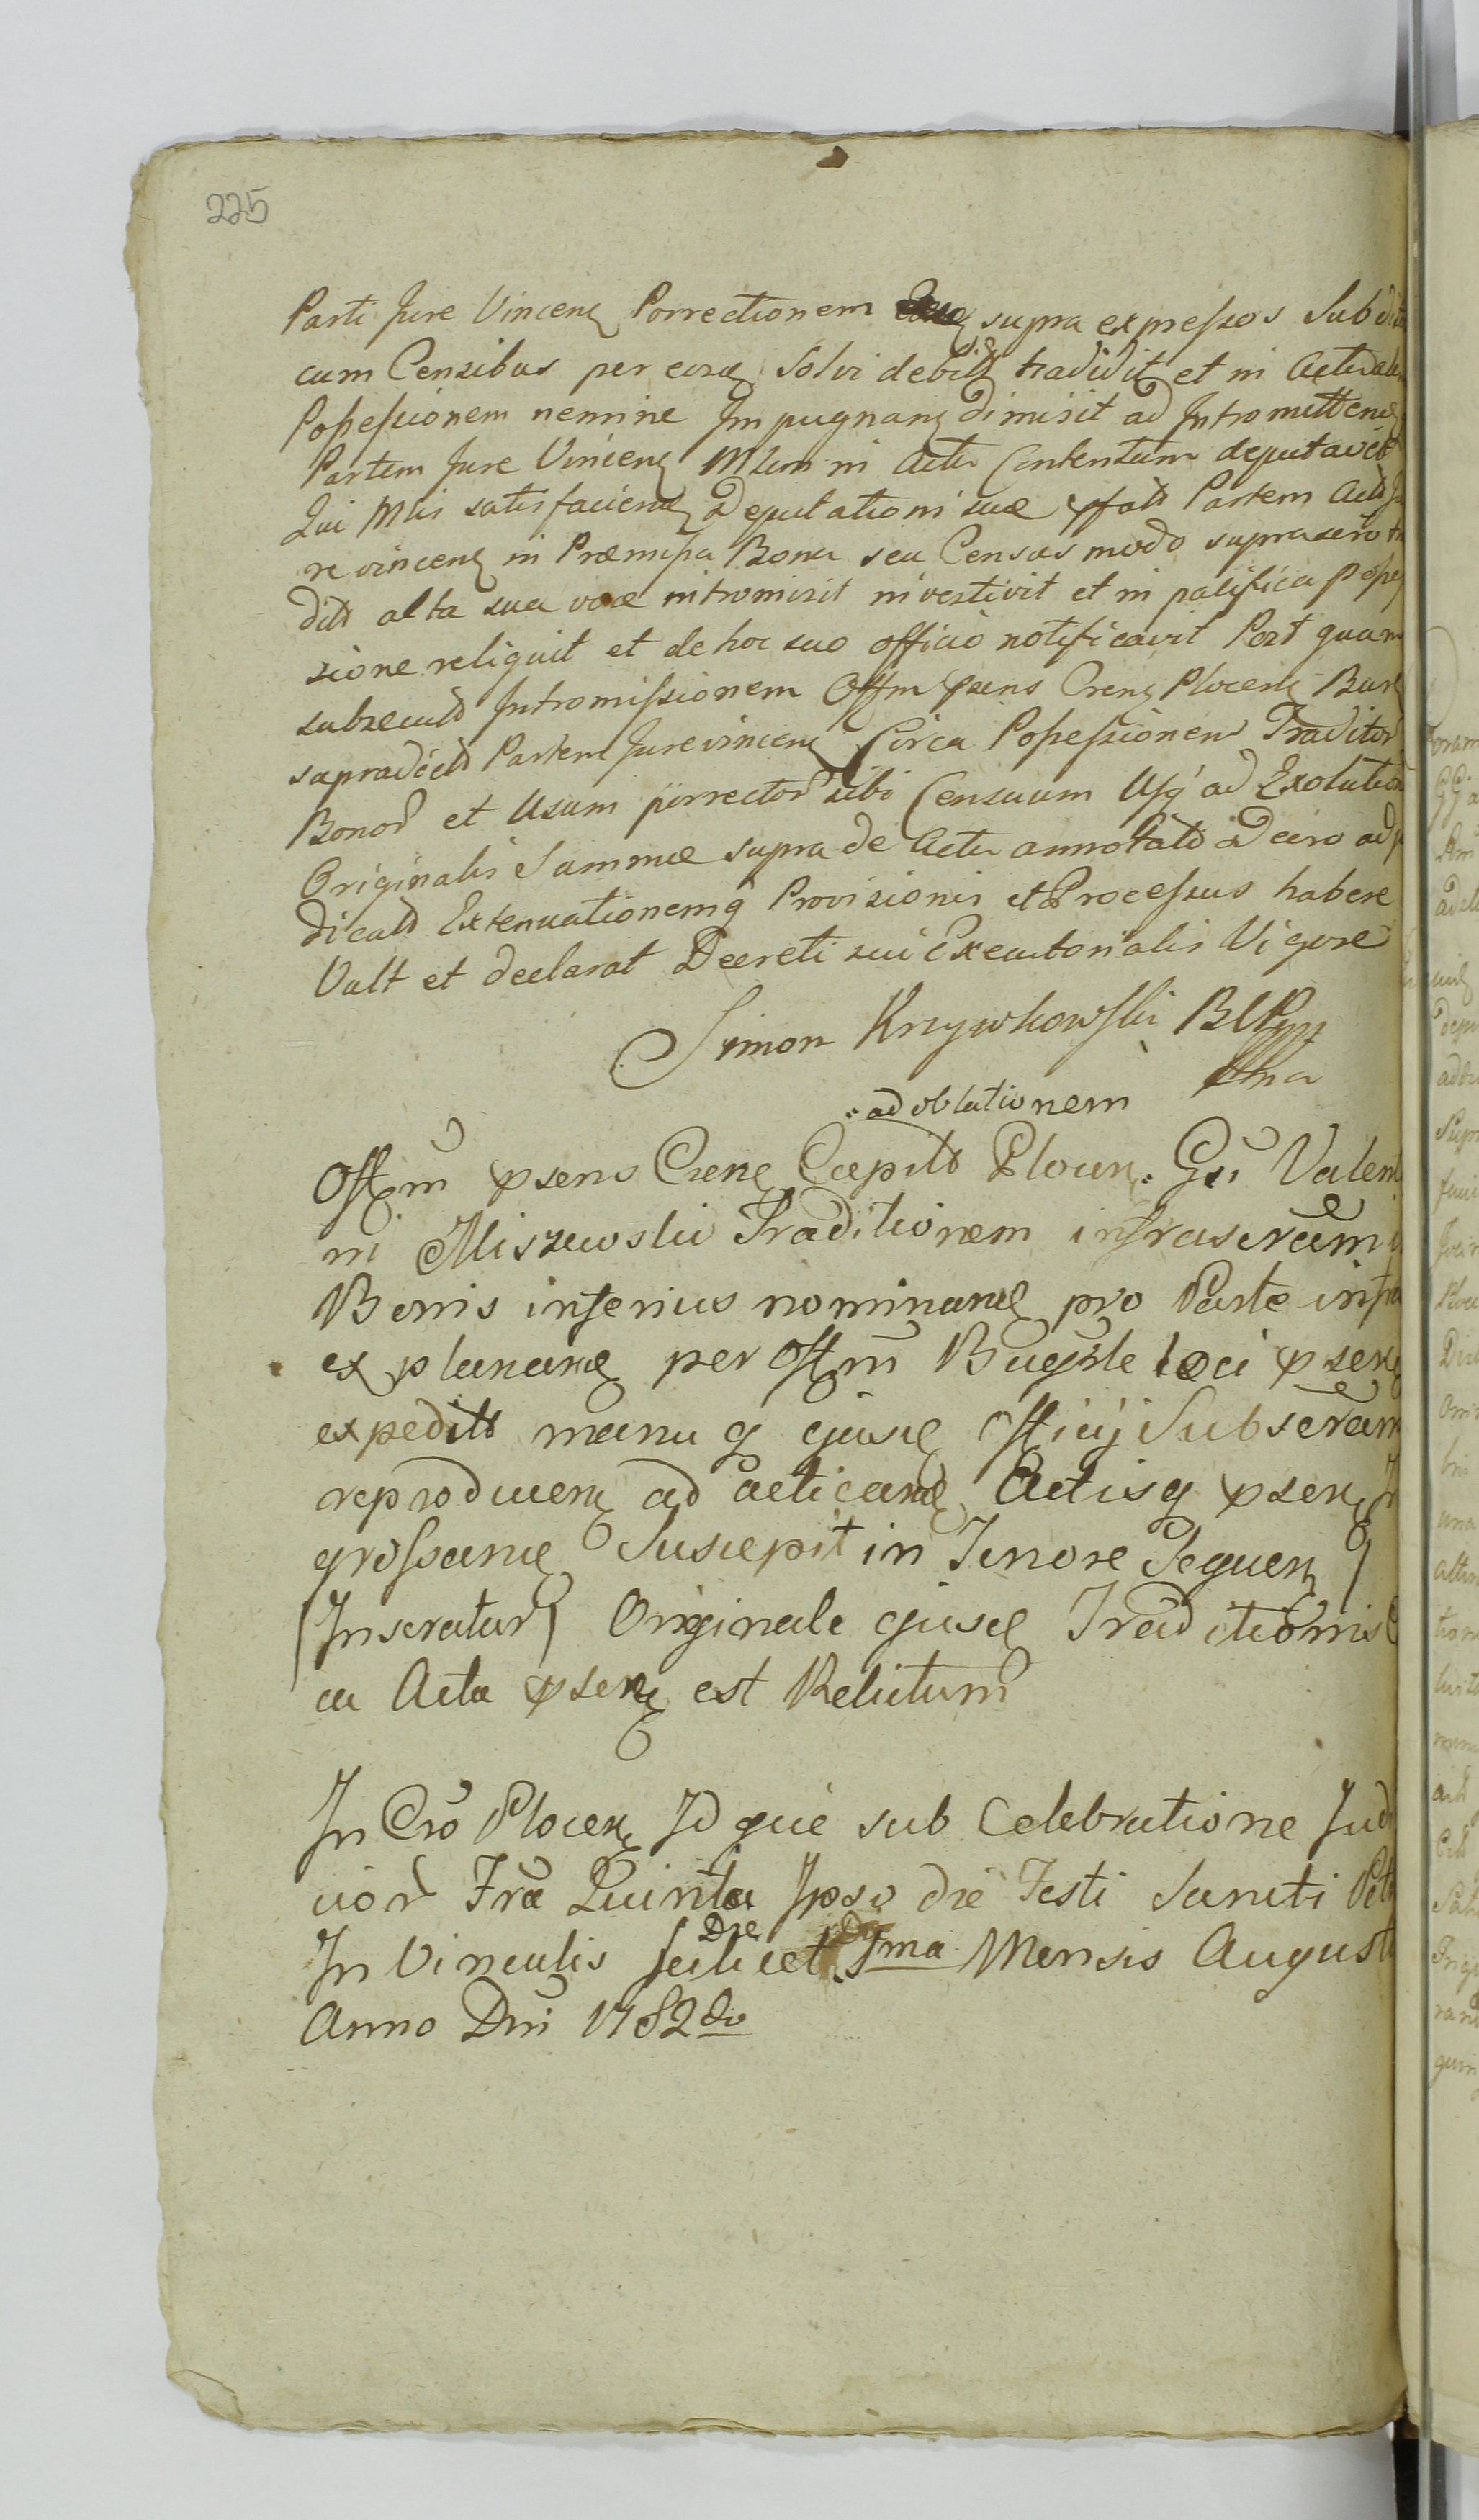 225
Parti Jure Vincenę Porrectionem supra expressos Subdit
cum Censibus per eosdę Solvi debitt tradidit et in Actualem
Possessionem nemine Impugnanę dimisit ad Intromittendę
Partem Jure Vincenę Mlem in Actu Contentum deputavit
Qui Mlis satisfaciendę Deputationi suæ pfatt Partem Actę Ju
re vincenę in Præmissa Bona seu Census modo suprascro tra
ditt alta sua voce intromisit investivit et in pacifica posses
sione reliquit et de hoc suo officio notificavit Post quam
subsecutt Intromissionem Offm psens Crenę Plocenę Burę
supradictt Partem Jurevincenę Circa Possessionem Traditor
Bonor et Usum porrector sibi Censuum Usq ad Exolution
Originalis Summæ supra de Actu annotatt Decro adju
dicatt Extenuationemq Provisionis et Processus habere
Vult et declarat Decreti sui Executorialis Vigore
Simon Krzywkowski BCP
ad oblationem
Offm psens Crenę Capitt Plocenę Gsi Valenti
ni Miszewski Traditionem infrascram in
Bonis inferius nominandę pro Parte infra
explanandę per Offm Burgsle loci psenę
expeditt manu q ejusdę Officij Subscram
reproducenę ad acticandę Actisq psenę In
grossandę Suscepit in Tenore Sequenę /
/Inseratur/ Originale ejusdę Traditionis Cir
ca Acta psenę est Relictum
In Cro Plocenę Idque sub Celebratione Judi
cior Fra Quinta Ipso die Festi Sancti Petri
In Vinculis scilicet Die 1ma Mensis Augusti
Anno Dni 1782do